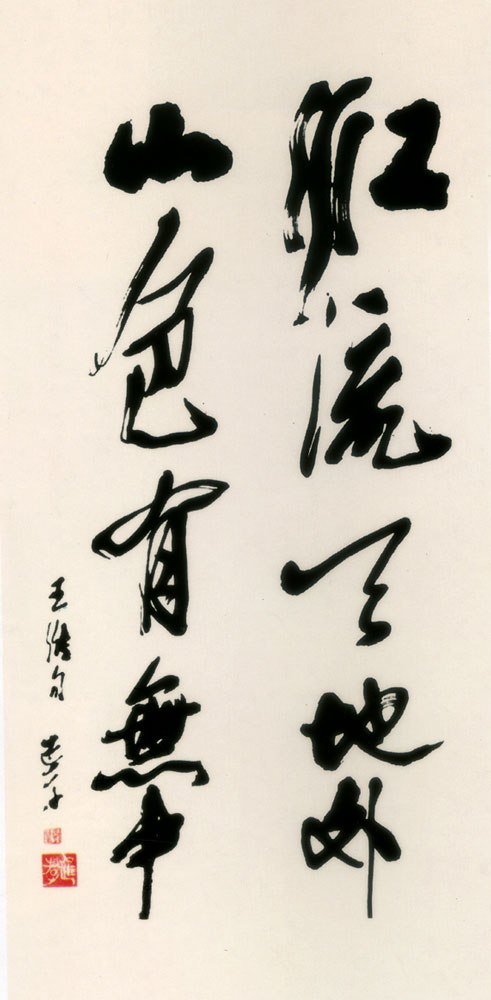 江流天地外
山色有無中
王維句